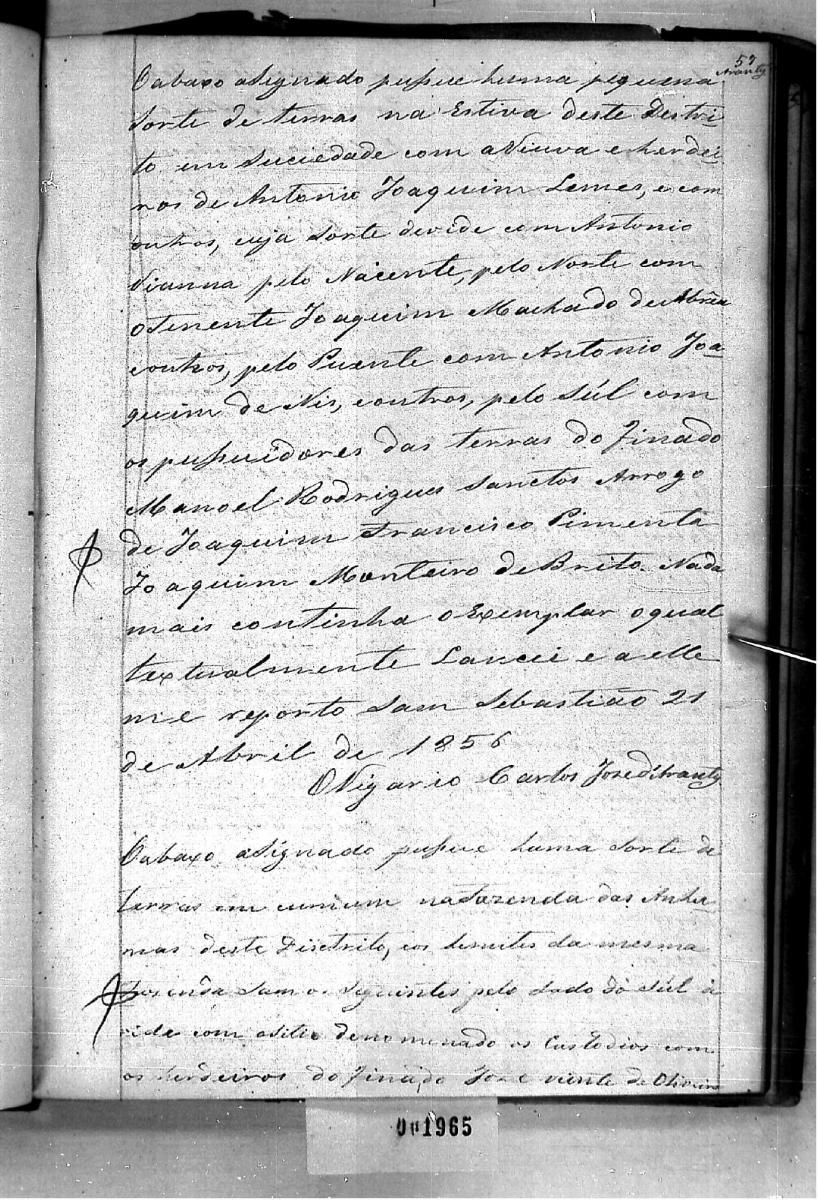 57
Arantes
O abaxo asignado pussue huma pequena
Sorte de terras na Estiva deste Destri-
to em Suciedade com a Viuva e herdei-
ros de Antonio Joaquim Lemes, e com
outros, cuja Sorte devide com Antonio
Vianna pelo Nacente, pelo Norte com
o Tenente Joaquim Machado de Abrêu
e outros, pelo Puente com Antonio Joa-
quim de Nis, e outros, pelo Súl com
os pussuidores das terras do finado
Manoel Rodrigues Sanctos Arrogo
de Joaquim Francisco Pimenta
Joaquim Monteiro de Brito. Nada
mais continha o Exemplar o qual
textualmente Lancei e a elle
me reporto Sam Sebastião 21
de Abril de 1856
O Vigario Carlos José d'Arantes
O abaxo asignado pussue huma Sorte de
terras em cumum na fazenda das Anhu-
mas deste Disctrito, e os lemites da mesma
fazenda Sam os Siguintes pelo Lado do Súl di-
vide com o sitio denomenado os Custodios com
os herdeiros do finado José vicente de Oliveira
001965